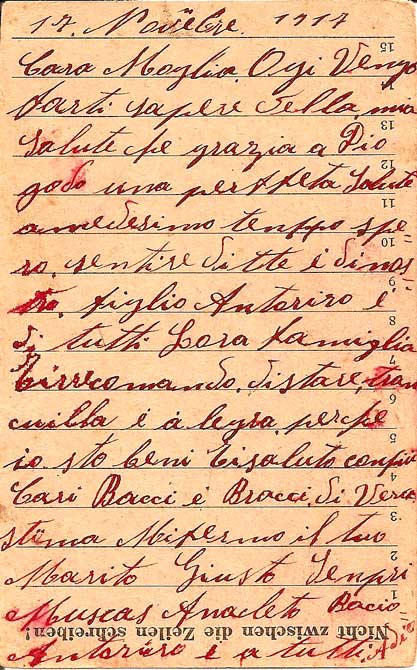 17. Nověbre. 1917
Cara Moglia. Ogi Vengo
farti sapere della mia
Salute pe grazia a Dio
godo una perffeta Salute
amedesimo temppo spe-
ro. sentire ditte é dinos-
tro. figlio Antoniro é
di tutti Lora famiglia
Tirrecomando. distare tran
cuilla é álegra. perpe
io sto beni Tisaluto conpiu
Cari Bacci é Bracci. di Vera
stima Mifermo il tuo
Marito Giusto Senpri
Muscas Anacleto Bacio
Antoniro é a tutti. Adio
15
13
12
11
10
9
8
7
6
5
4
3
2
1
Nicht zwischen die Zeilen schreiben!